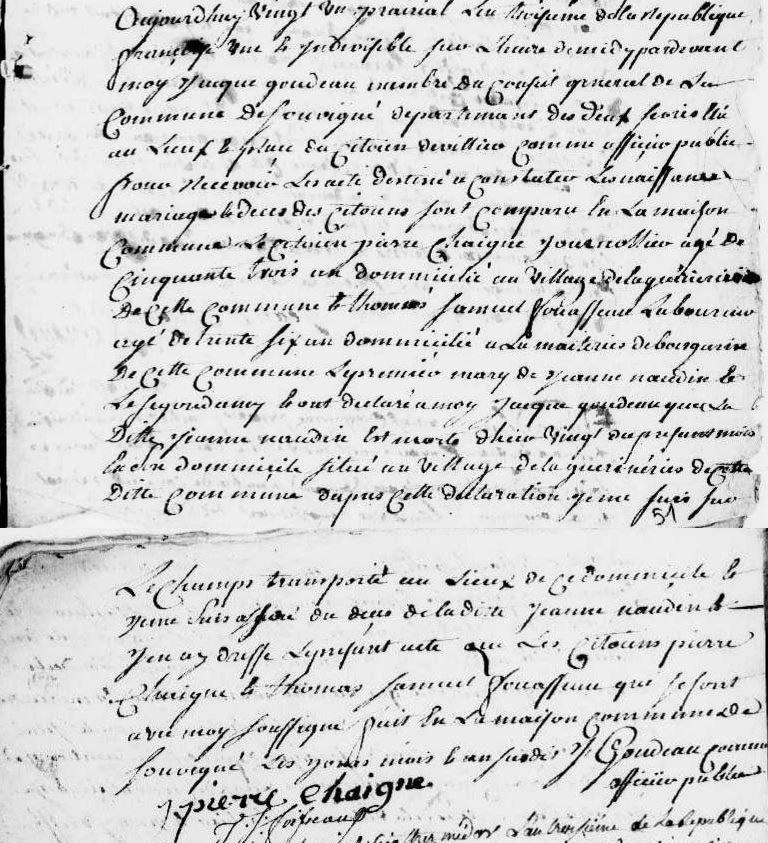 Aujourdhuy vingt un prairial L'an troisieme de la republique
françoise une et Indivisible sur L'heure de midy pardevant
moy Jacque goudeau membre du Conseil general de La
Commune de Souvigné departement des deux sevres Elu
au Lieux et place du Citoien devillier comme officier public
pour recevoir Les acte destiné a Constater Les naissances
mariages et deces des Citoiens sont Comparu En La maison
Commune Le Citoien pierre Chaigne Journallier agé de
Cinquante trois an dommicilié au village de la guerinerie
de Cette Commune et thomas Samuel Laboureur
agé de trente six an dommicilié a La maiteries de
de Cette Commune Le premier mary de Jeanne naudin et
Le segond amy et ont declaré a moy Jacque goudeau que La
Ditte Jeanne naudin Est morte d'hier vingt du present mois
En son dommicile situé au village de la guerineries de Cette
Ditte Commune dapres Cette declaration Je me suis sur
51
Le Champs transporté au Lieux de Ce dommicile et
Je me suis assuré du deces de laditte Jeanne naudin et
J'en ay dressé Le present acte que Les Citoiens pierre
Chaigne et thomas Samuel qui se sont
avec moy soussigné fait En La maison Commune de
Souvigné Les Jours mois et an susdit J Goudeau comme
officier public
pierre Chaigne
L'an troisieme de La Republique